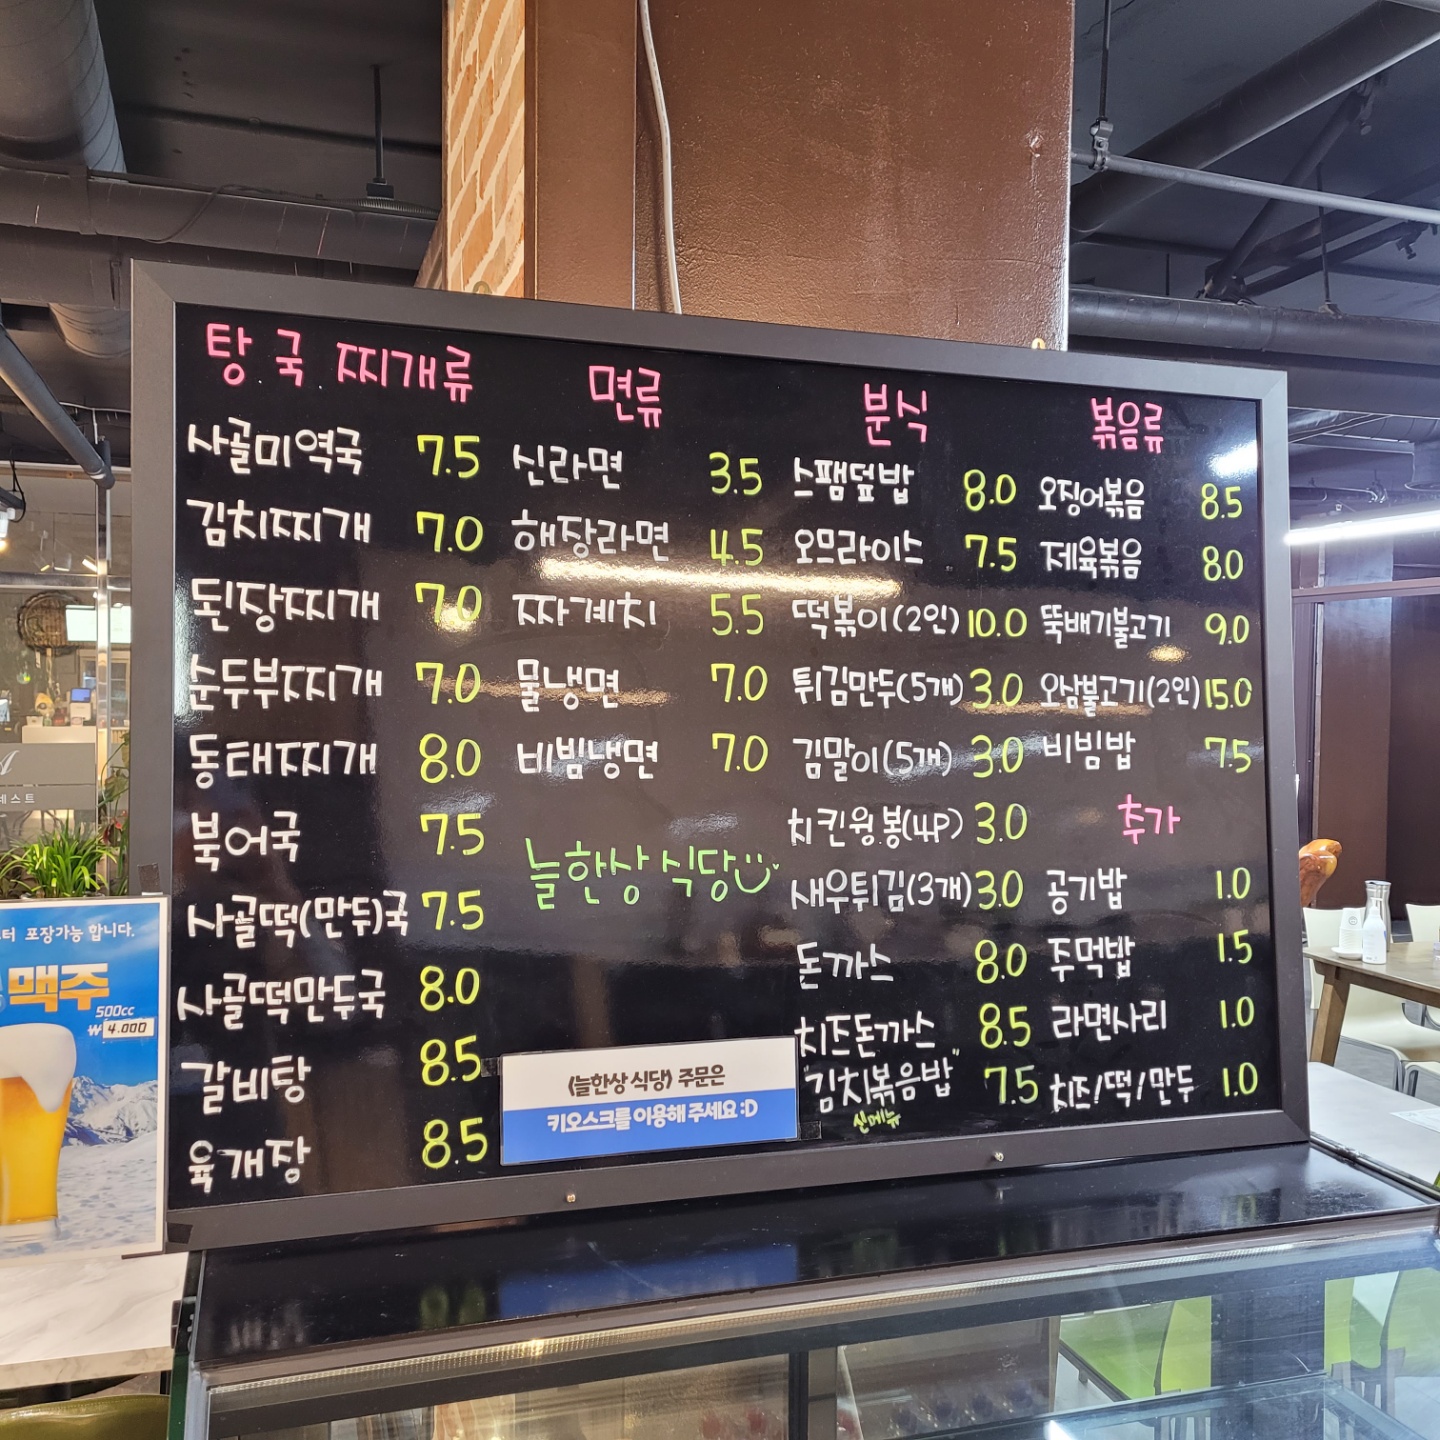 탕 국 찌개류
사골미역국 7.5
김치찌개 7.0
된장찌개 7.0
순두부찌개 7.0
동태찌개 8.0
북어국 7.5
사골떡(만두)국 7.5
사골떡만두국 8.0
갈비탕 8.5
육개장 8.5
면류
신라면 3.5
해장라면 4.5
짜계치 5.5
물냉면 7.0
비빔냉면 7.0
늘한상 식당
《늘한상 식당》 주문은
키오스크를 이용해 주세요 :D
분식
스팸덮밥 8.0
오므라이스 7.5
떡볶이(2인) 10.0
튀김만두(5개) 3.0
김말이(5개) 3.0
치킨윙봉(4P) 3.0
새우튀김(3개) 3.0
돈까스 8.0
치즈돈까스 8.5
"김치볶음밥" 7.5
신메뉴
볶음류
오징어볶음 8.5
제육볶음 8.0
뚝배기불고기 9.0
오삼불고기(2인) 15.0
비빔밥 7.5
추가
공기밥 1.0
주먹밥 1.5
라면사리 1.0
치즈/떡/만두 1.0
포장가능 합니다.
맥주
500cc
₩ 4.000